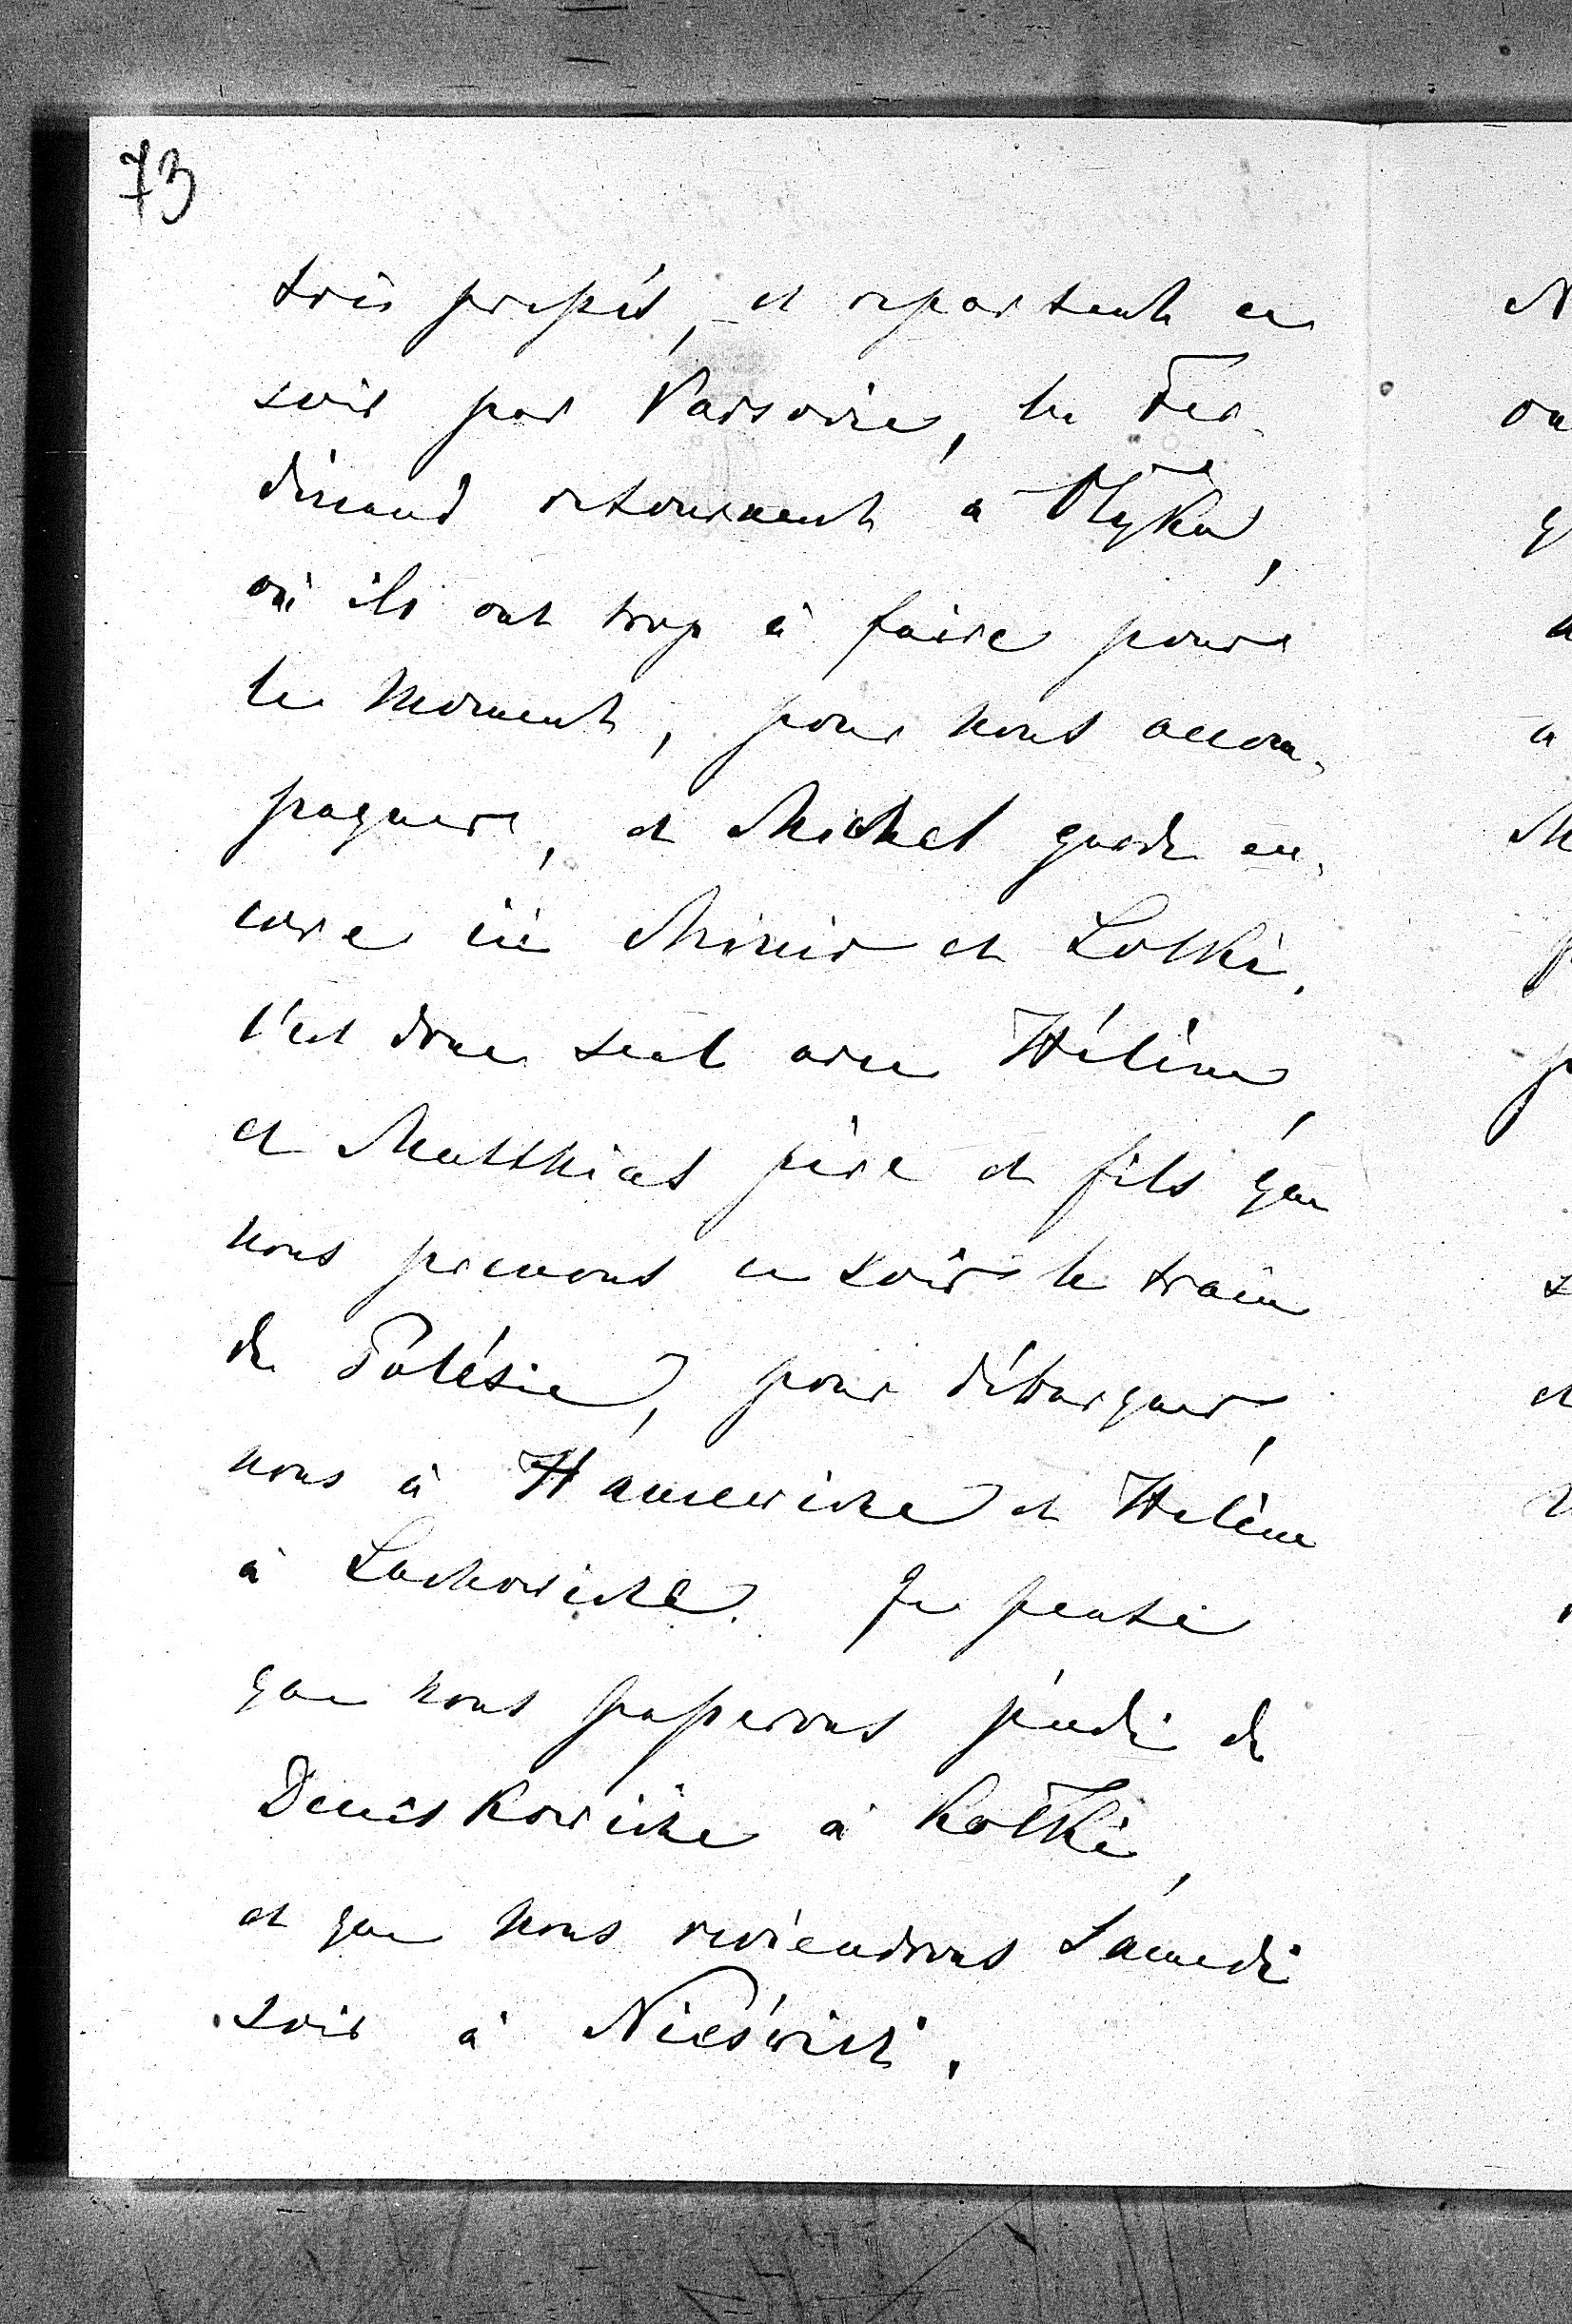 73
très pressés, et repartent ce
soir par Varsovie, les Fer-
dinand retournent à Olyka,
où ils ont trop à faire pour
le moment, pour nous accom-
pagner, et Michel garde en-
core ici Mimis et Lolki.
C'est donc seul avec Hélène,
et Matthias père et fils que
nous prenons ce soir le train
de Polésie, pour débarquer,
nous à Hancewicze et Hélène
à Lachowicze. Je pense
que nous passerons jeudi de
Deniskowicze à Kołki,
et que nous reviendrons Samedi
soir à Nieśwież.